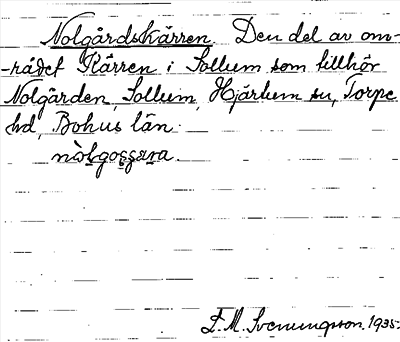 Nolgårdskärren. Den del av om-
-rådet Kärren i Sollum som tillhör
Nolgården, Sollum, Hjärtum sn, Torpe
hd, Bohus län.
S. M. Svenungsson. 1935.